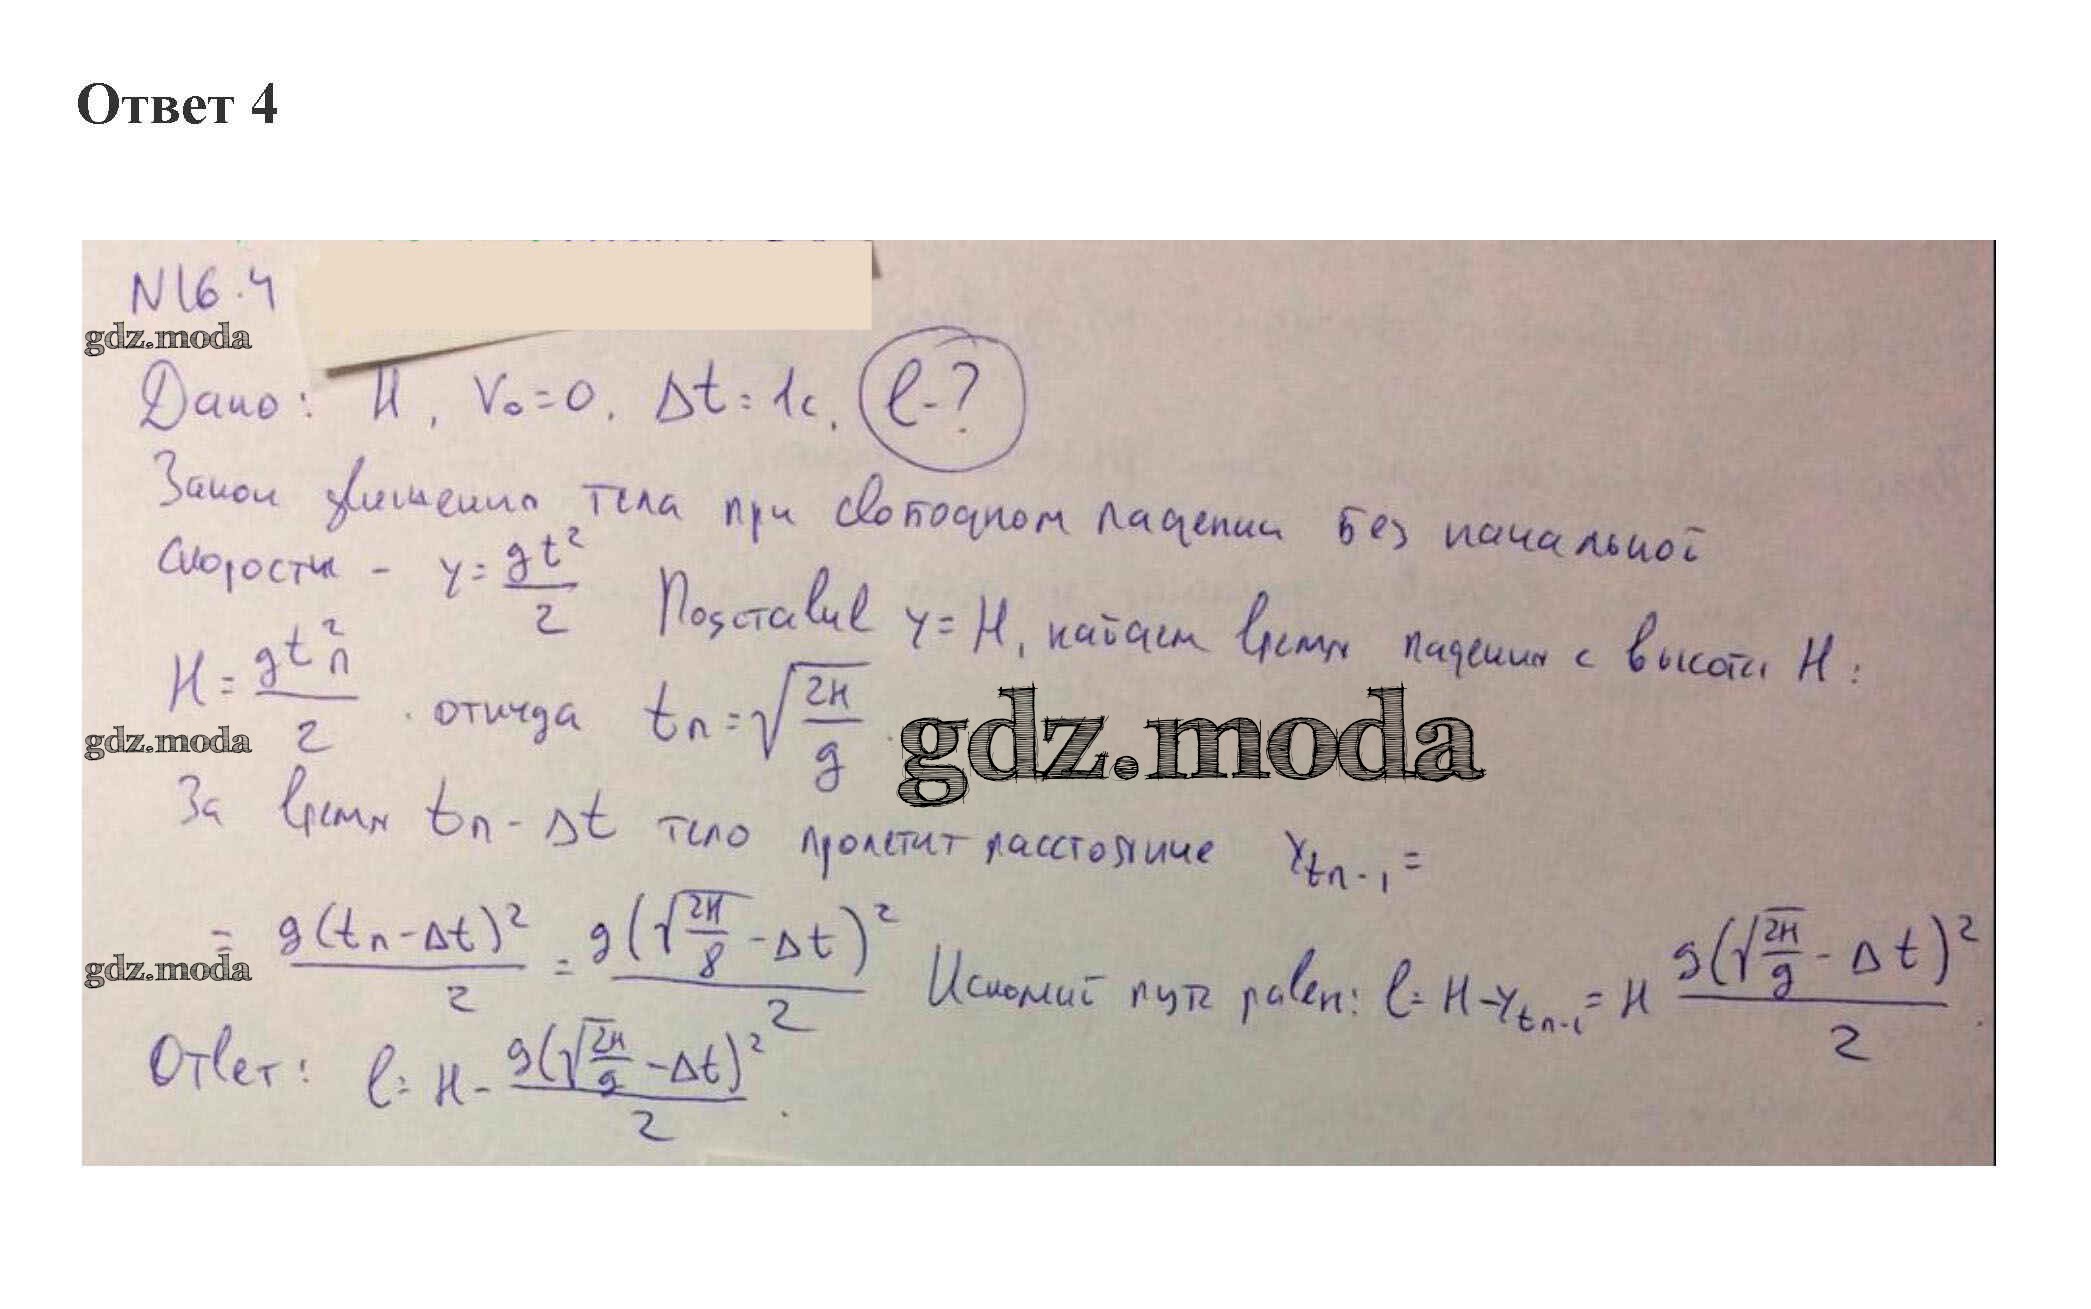 Ответ 4
N16.4
gdz.moda
Дано: H, V₀=0, Δt=1с, l-?
Закон движения тела при свободном падении без начальной
скорости - y=gt²/2 Подставив y=H, найдем время падения с высоты H:
H=gtп²/2. откуда tп=√(2H/g).
gdz.moda
gdz.moda
За время tп-Δt тело пролетит расстояние Ytп-1=
= g(tп-Δt)²/2 = g(√(2H/8)-Δt)²/2 Искомый путь равен: l=H-Ytп-1=H g(√(2H/g)-Δt)²/2.
gdz.moda
Ответ: l=H-g(√(2H/g)-Δt)²/2.